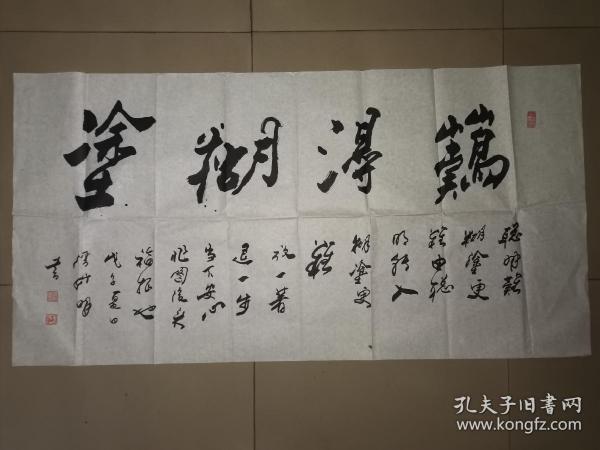 難得糊塗
聰明難
糊塗更
難由聰
明轉入
糊塗更
難
放一著
退一步
當下安心
非圖後來
福報也
戊子夏日
孔夫子旧书网
www.kongfz.com